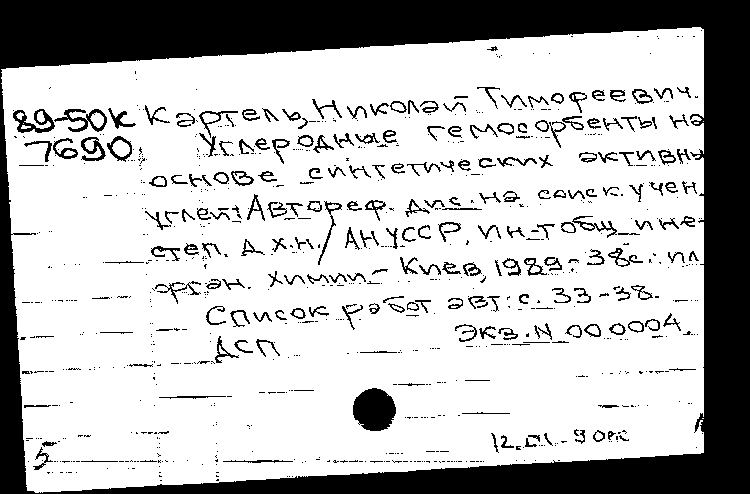 89-50К Картель, Николай Тимофеевич.
7690 Углеродные гемосорбенты на
основе синтетических активны
углей: Автореф. дис. на соиск. учен.
степ. д.х.н. / АН УССР, Ин-т общ. и не-
орган. химии - Киев, 1989. - 38с.: ил
Список работ авт.: с. 33-38.
ДСП Экз. N 000004.
5